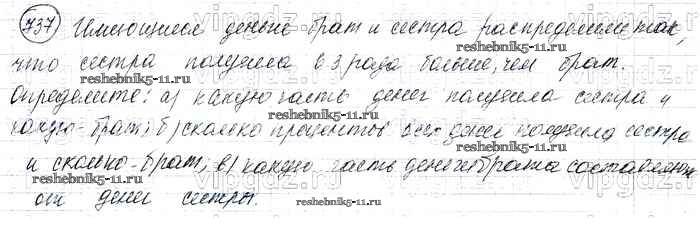 737 Имеющиеся деньги брат и сестра распределили так,
что сестра получила в 3 раза больше, чем брат.
reshebnik5-11.ru reshebnik5-11.ru
Определите: а) какую часть денег получила сестра и
какую - брат; б) сколько процентов всех денег получила сестра
reshebnik5-11.ru
и сколько - брат; в) какую часть деньги брата составляют
reshebnik5-11.ru
от денег сестры.
reshebnik5-11.ru
vipgdz.ru